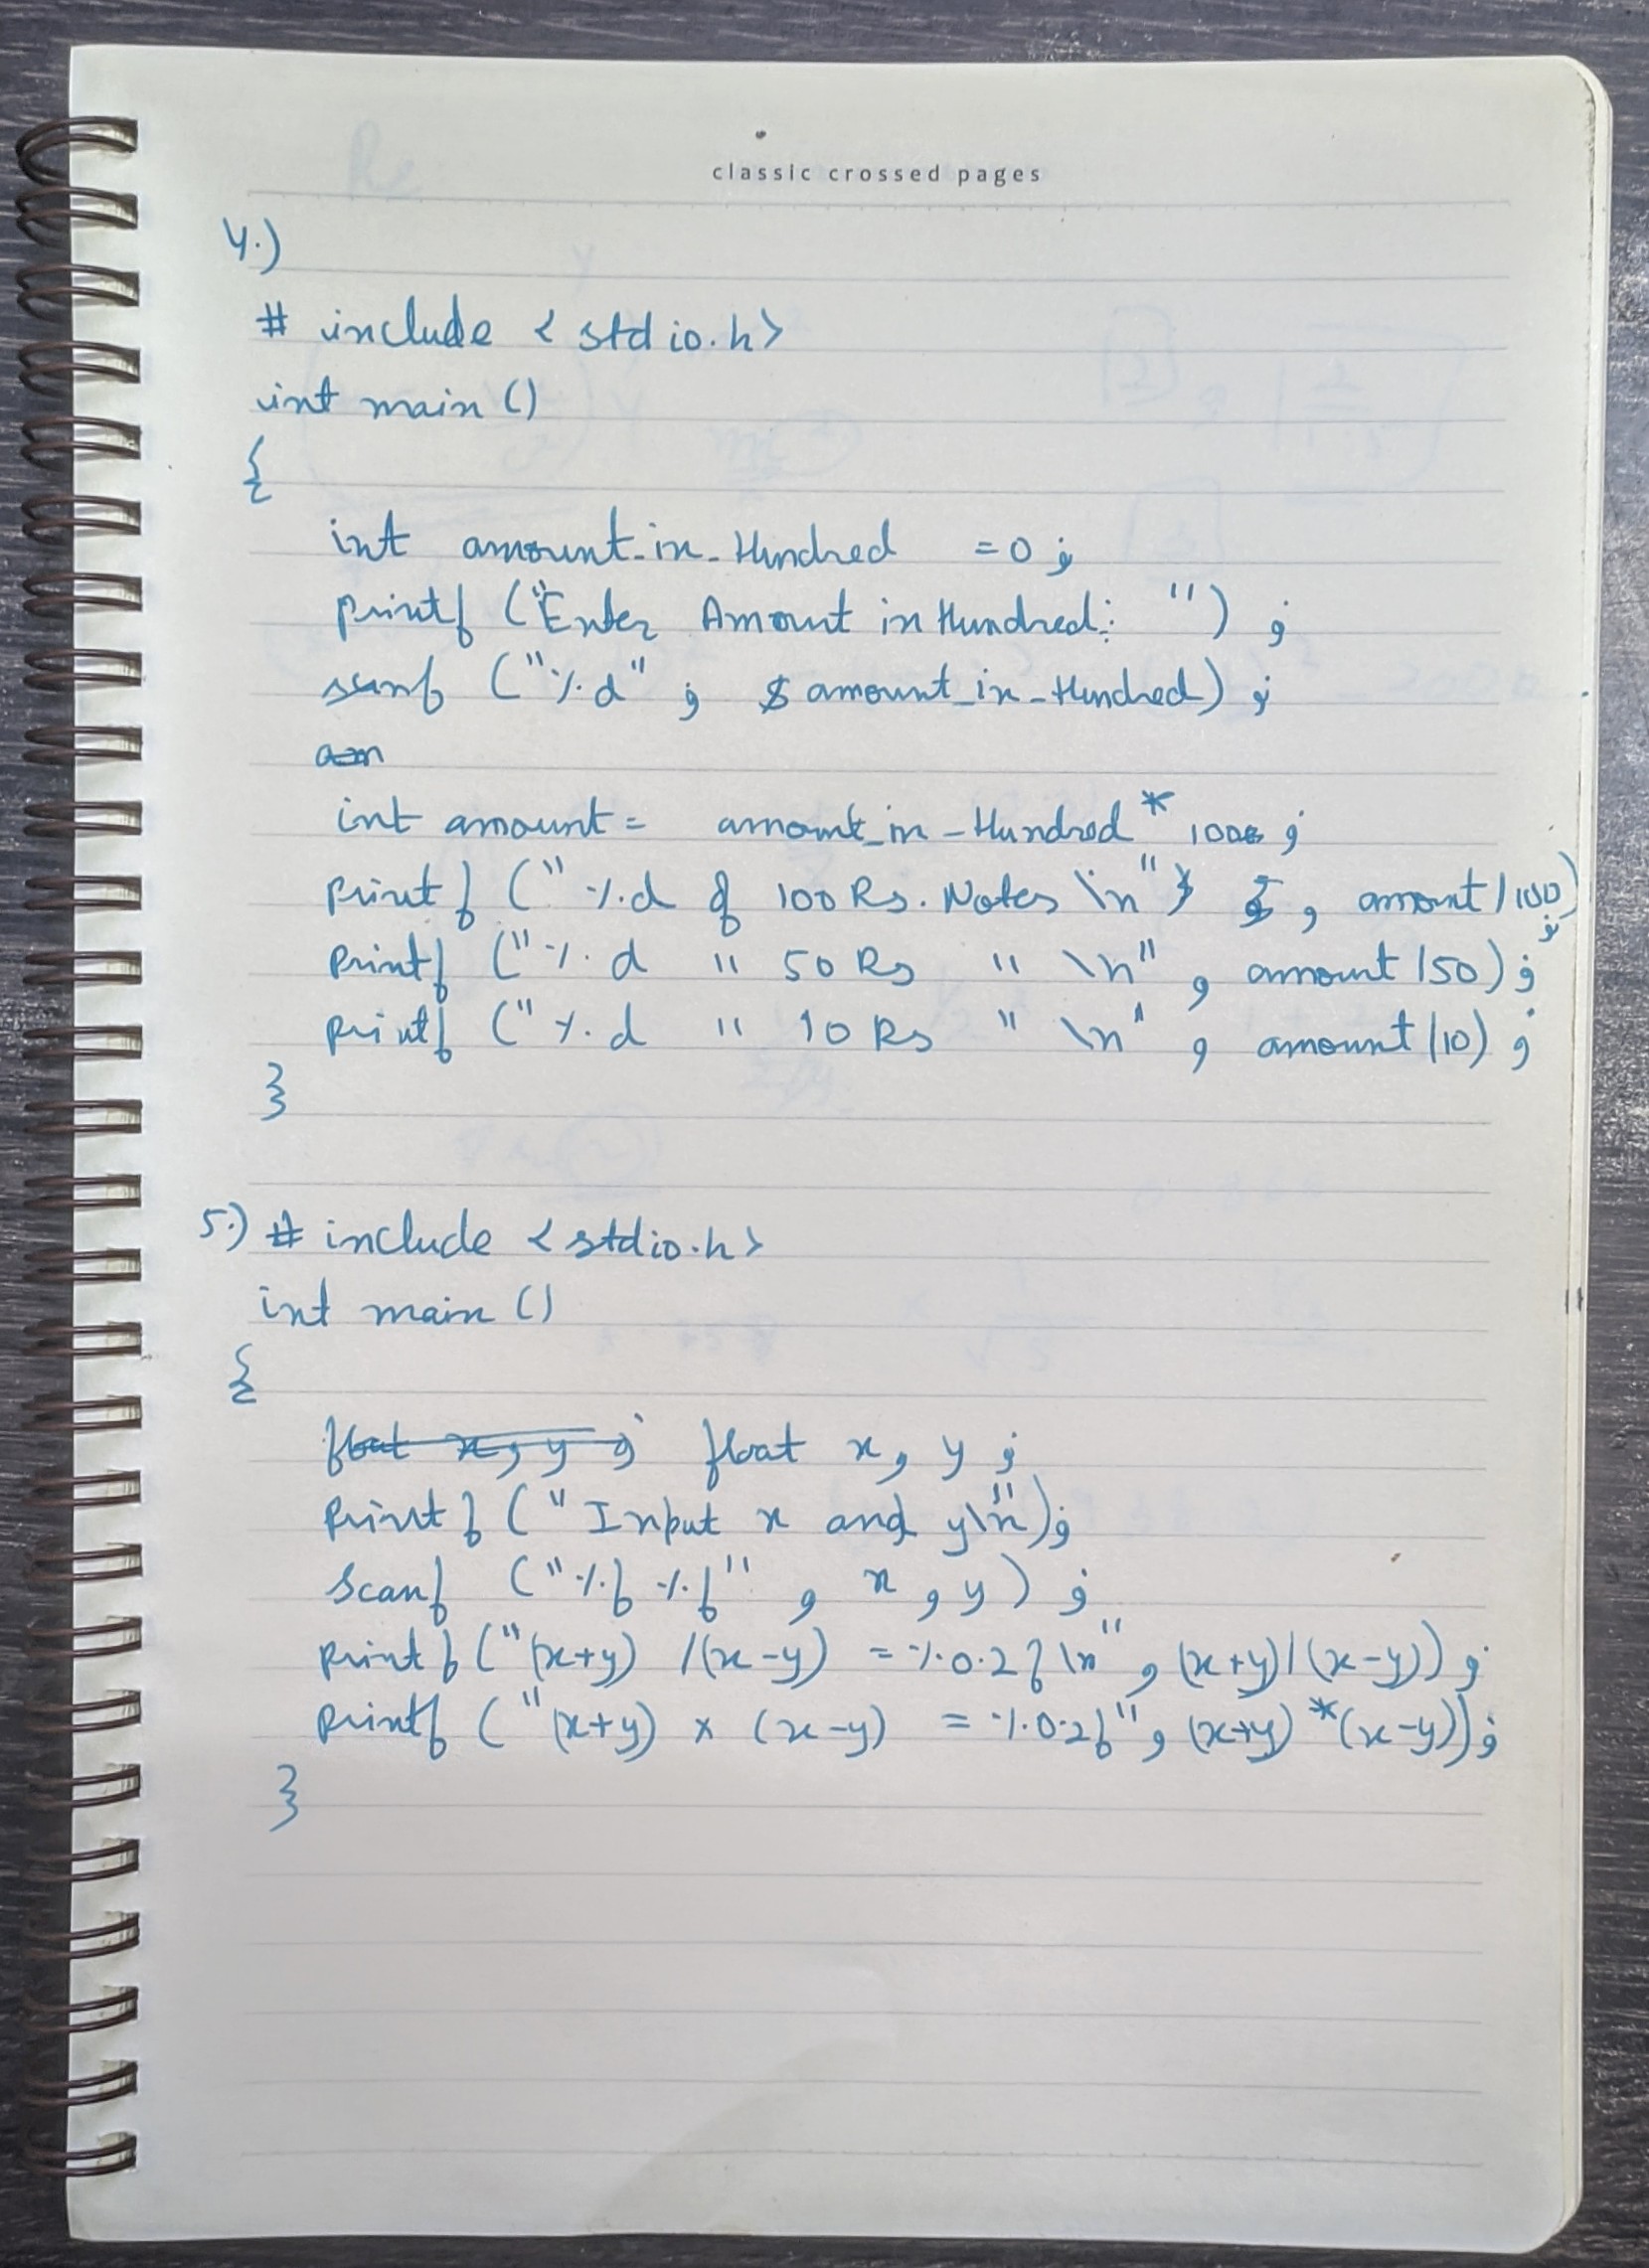 classic crossed pages
4.)
# include <stdio.h>
int main ()
{
int amount_in_Hundred = 0 ;
printf ("Enter Amount in Hundred: ") ;
scanf ("%d" ; $ amount_in_Hundred) ;
int amount = amount_in_Hundred *
printf ("%d of 100 Rs. Notes \n" , amount/100) ;
printf ("%d " 50 Rs " \n" , amount/50) ;
printf ("%d " 10 Rs " \n" , amount/10) ;
}
5.) # include <stdio.h>
int main ()
{
float x, y ; float x, y ;
printf ("Input x and y\n");
scanf ("%f %f" , x , y) ;
printf ("(x+y) /(x-y) = %0.2f \n" , (x+y)/(x-y)) ;
printf ("(x+y) x (x-y) = %0.2f" , (x+y) *(x-y)) ;
}